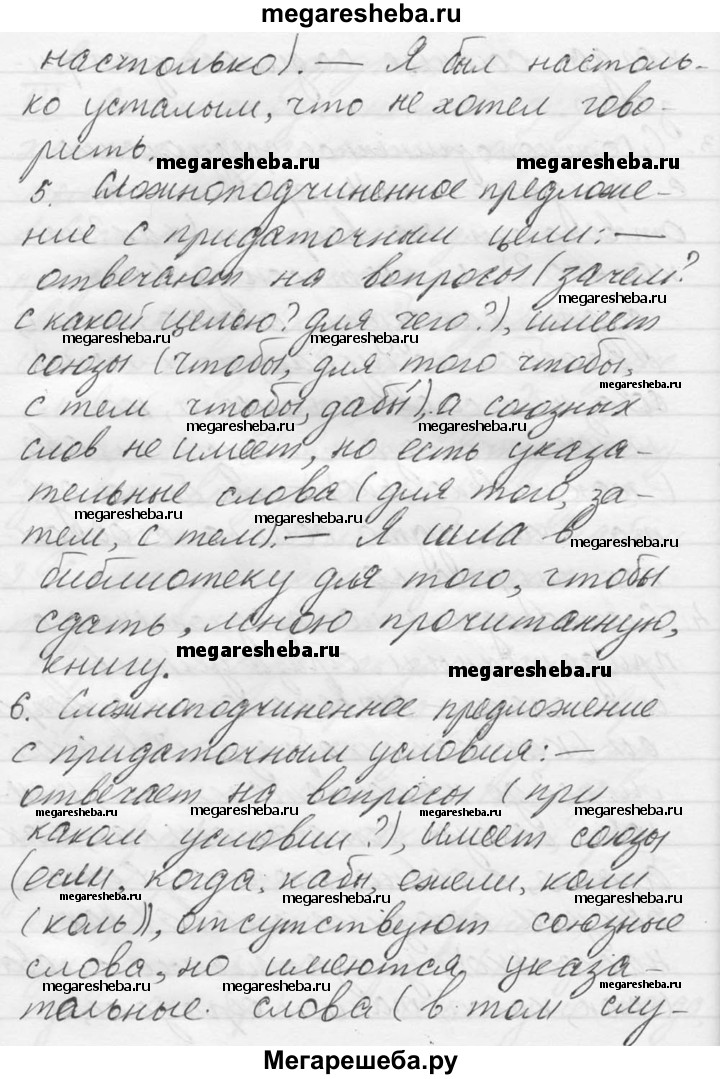 megaresheba.ru
настолько). — Я был настоль-
ко усталым, что не хотел гово-
рить.
megaresheba.ru megaresheba.ru
5. Сложноподчиненное предложе-
ние с придаточным цели: —
отвечают на вопросы (зачем?
megaresheba.ru
с какой целью? для чего?), имеет
megaresheba.ru megaresheba.ru
союзы (чтобы, для того чтобы,
megaresheba.ru
с тем чтобы, дабы), а союзных
megaresheba.ru megaresheba.ru
слов не имеет, но есть указа-
тельные слова (для того, за-
megaresheba.ru megaresheba.ru
тем, с тем). — Я шла в
megaresheba.ru
библиотеку для того, чтобы
сдать, мною прочитанную,
megaresheba.ru
книгу.
megaresheba.ru
6. Сложноподчиненное предложение
с придаточным условия: —
отвечает на вопросы (при
megaresheba.ru megaresheba.ru megaresheba.ru
каком условии?), имеет союзы
(если, когда, кабы, ежели, коли
megaresheba.ru megaresheba.ru
(коль)), отсутствуют союзные
слова, но имеются указа-
megaresheba.ru megaresheba.ru megaresheba.ru
тельные слова (в том слу-
Мегарешеба.ру